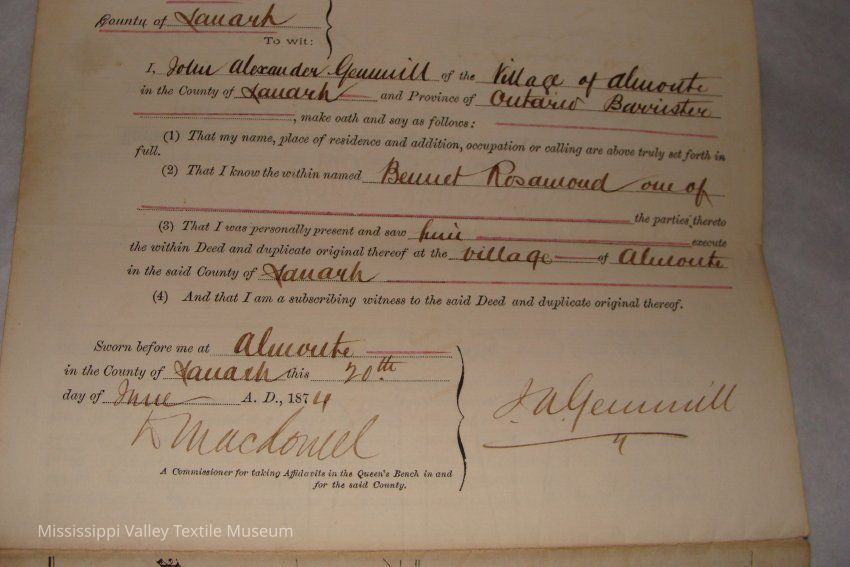 County of Lanark
To wit:
I, John Alexander Gemmill of the Village of Almonte
in the County of Lanark and Province of Ontario Barrister
, make oath and say as follows:
(1) That my name, place of residence and addition, occupation or calling are above truly set forth in
full.
(2) That I know the within named Bennet Rosamond one of
the parties thereto
(3) That I was personally present and saw him execute
the within Deed and duplicate original thereof at the village of Almonte
in the said County of Lanark
(4) And that I am a subscribing witness to the said Deed and duplicate original thereof.
Sworn before me at Almonte
in the County of Lanark this 20th
day of June A. D., 1874
J A Gemmill
A Commissioner for taking Affidavits in the Queen's Bench in and
for the said County.
Mississippi Valley Textile Museum